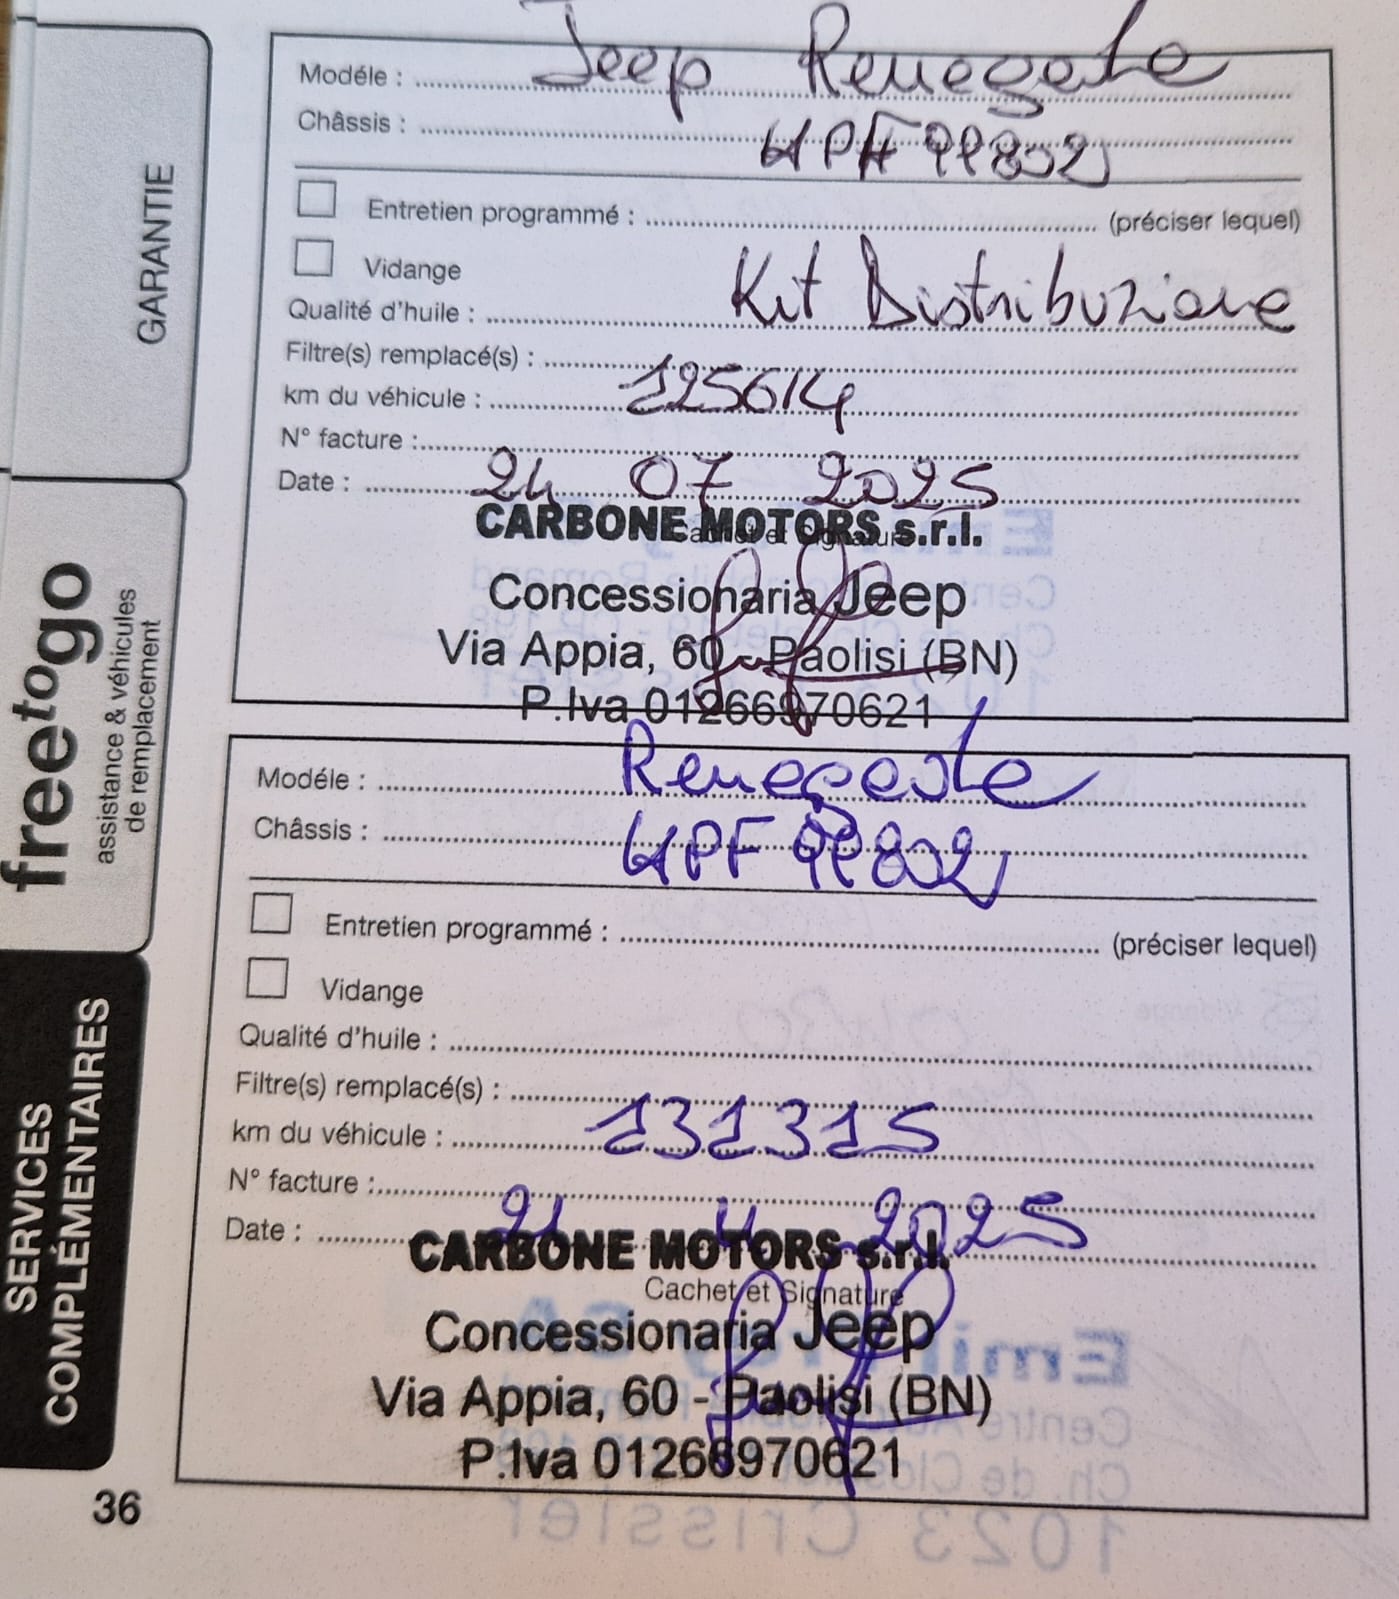 GARANTIE
freetogo
assistance & véhicules
de remplacement
SERVICES
COMPLÉMENTAIRES
Modéle : Jeep Renegade
Châssis : HPF99802
Entretien programmé : (préciser lequel)
Vidange
Qualité d'huile : Kit Distribuzione
Filtre(s) remplacé(s) :
km du véhicule : 125614
N° facture :
Date : 24 07 2025
CARBONE MOTORS s.r.l.
Concessionaria Jeep
Via Appia, 60 - Paolisi (BN)
P.Iva 01266970621
Modéle : Renegade
Châssis : HPF99802
Entretien programmé : (préciser lequel)
Vidange
Qualité d'huile :
Filtre(s) remplacé(s) :
km du véhicule : 131315
N° facture :
Date : 2025
CARBONE MOTORS s.r.l.
Cachet et Signature
Concessionaria Jeep
Via Appia, 60 - Paolisi (BN)
P.Iva 01266970621
36